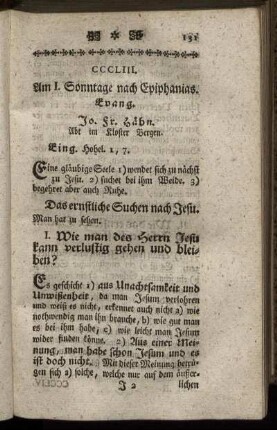 131
CCCLIII.
Am I. Sonntage nach Epiphanias.
Evang.
Jo. Fr. Hähn.
Abt im Kloster Bergen.
Eing. Hohel. 1, 7.
Eine gläubige Seele 1) wendet sich zu nächst
zu Jesu. 2) suchet bei ihm Weide. 3)
begehret aber auch Ruhe.
Das ernstliche Suchen nach Jesu.
Man hat zu sehen.
I. Wie man des Herrn Jesu
kann verlustig gehen und blei-
ben?
Es geschieht 1) aus Unachtsamkeit und
Unwissenheit, da man Jesum verlohren
und weiß es nicht, erkennet auch nicht a) wie
nothwendig man ihn brauche, b) wie gut man
es bei ihm habe, c) wie leicht man Jesum
wider finden könne. 2) Aus einer Mei-
nung, man habe schon Jesum und es
ist doch nicht. Mit dieser Meinung betrü-
gen sich a) solche, welche nur auf dem äusser-
CCCLIV. J 2 lichen